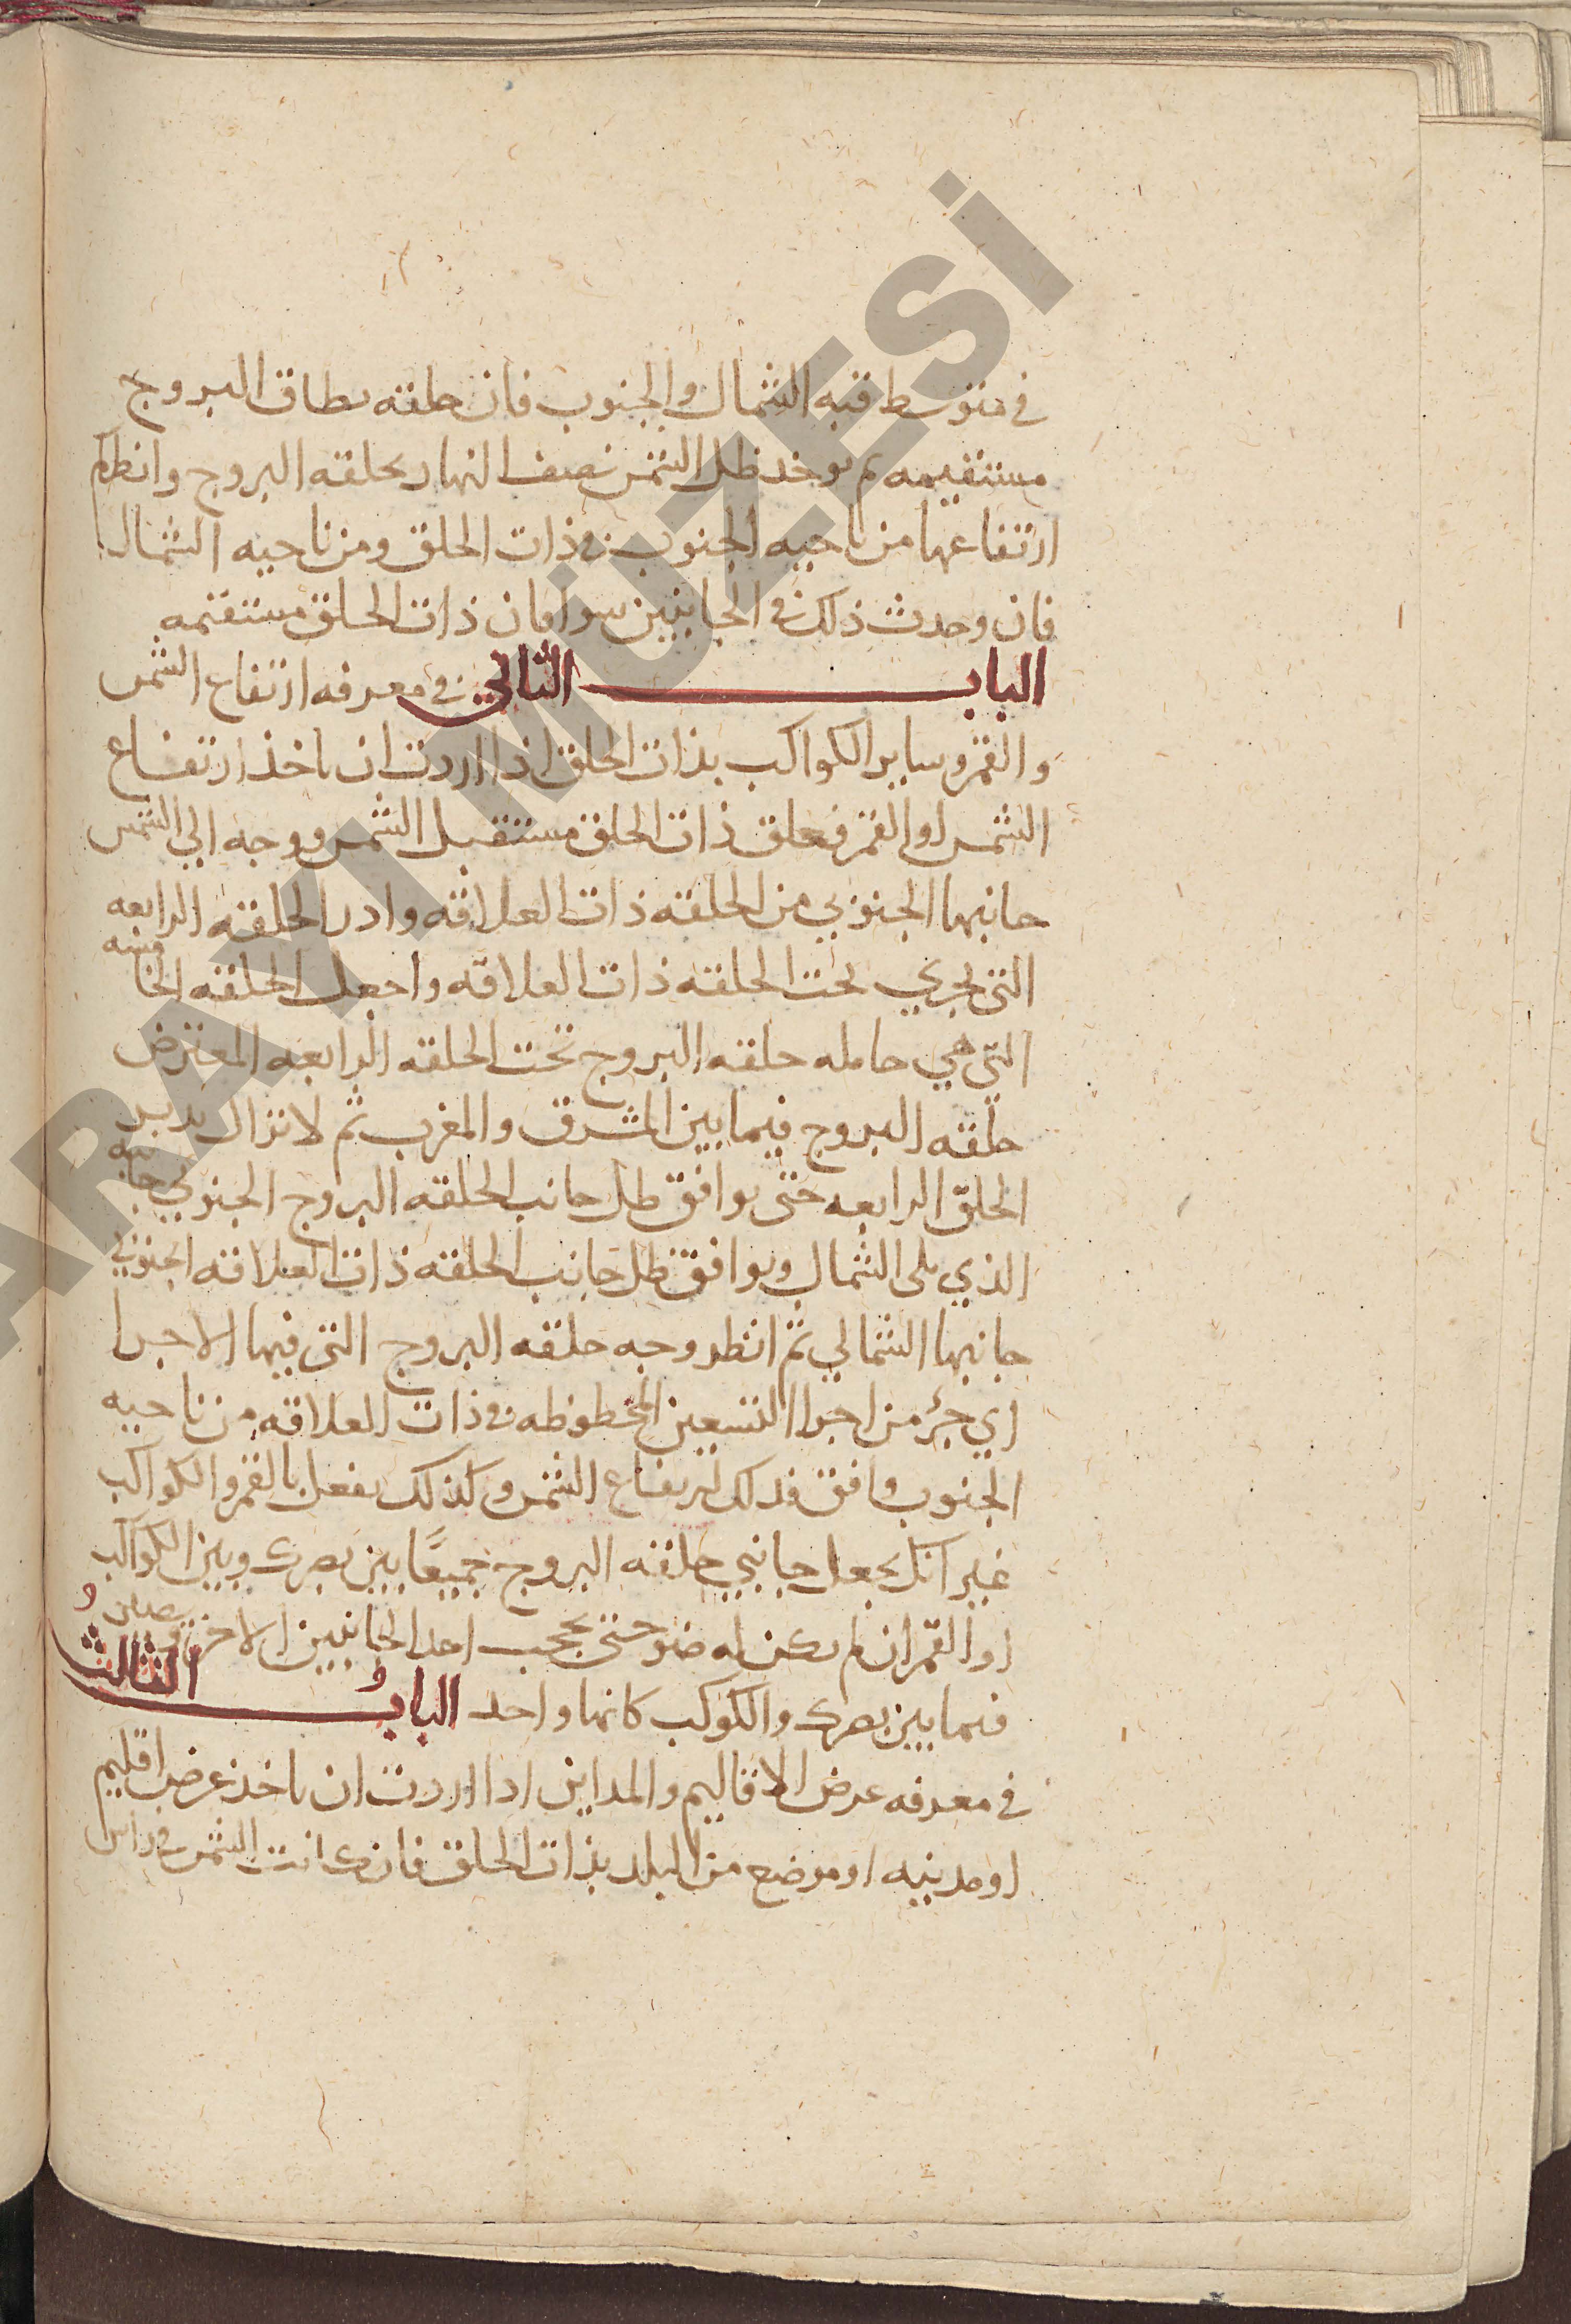 في متوسط قبه الشمال والجنوب فان حلقه نطاق البروج
مستقيمه ثم يوخذ ظل الشمس نصف النهار بحلقه البروج وانظر كم
ارتفاعها من ناحيه الجنوب في ذات الحلق ومن ناحيه الشمال
فان وجدت ذلك في الجانبين سوا فان ذات الحلق مستقيمه
الباب الثاني في معرفه ارتفاع الشمس
والقمر وساير الكواكب بذات الحلق اذا اردت ان تاخذ ارتفاع
الشمس او القمر فعلق ذات الحلق مستقبل الشمس ووجه الي الشمس
جانبها الجنوبي من الحلقه ذات العلاقه وادر الحلقه الرابعه
التي تجري تحت الحلقه ذات العلاقه واجعل الحلقه الخامسه
التي هي حامله حلقه البروج تحت الحلقه الرابعه المعترض
حلقه البروج فيما بين المشرق والمغرب ثم لا تزال تدير
الحلق الرابعه حتى يوافق ظل جانب الحلقه البروج الجنوبي جانبه
الذي يلى الشمال ويوافق ظل جانب الحلقه ذات العلاقه الجنوبي
جانبها الشمالي ثم انظر وجه حلقه البروج التي فيها الاجزا
اي جزء من اجزا التسعين المخطوطه في ذات العلاقه من ناحيه
الجنوب وافق فذلك ارتفاع الشمس وكذلك تفعل بالقمر والكواكب
غير انك تجعل جانبي حلقه البروج جميعًا بين بصرك وبين الكواكب
او القمر ان لم يكن له ضو حتى يحجب احد الجانبين الاخر
فيما بين بصرك والكوكب كانها واحد الباب الثالث
في معرفه عرض الاقاليم والمداين اذا اردت ان تاخذ عرض اقليم
او مدينه او موضع من البلد بذات الحلق فان كانت الشمس في راس
ARAYI MÜZESİ